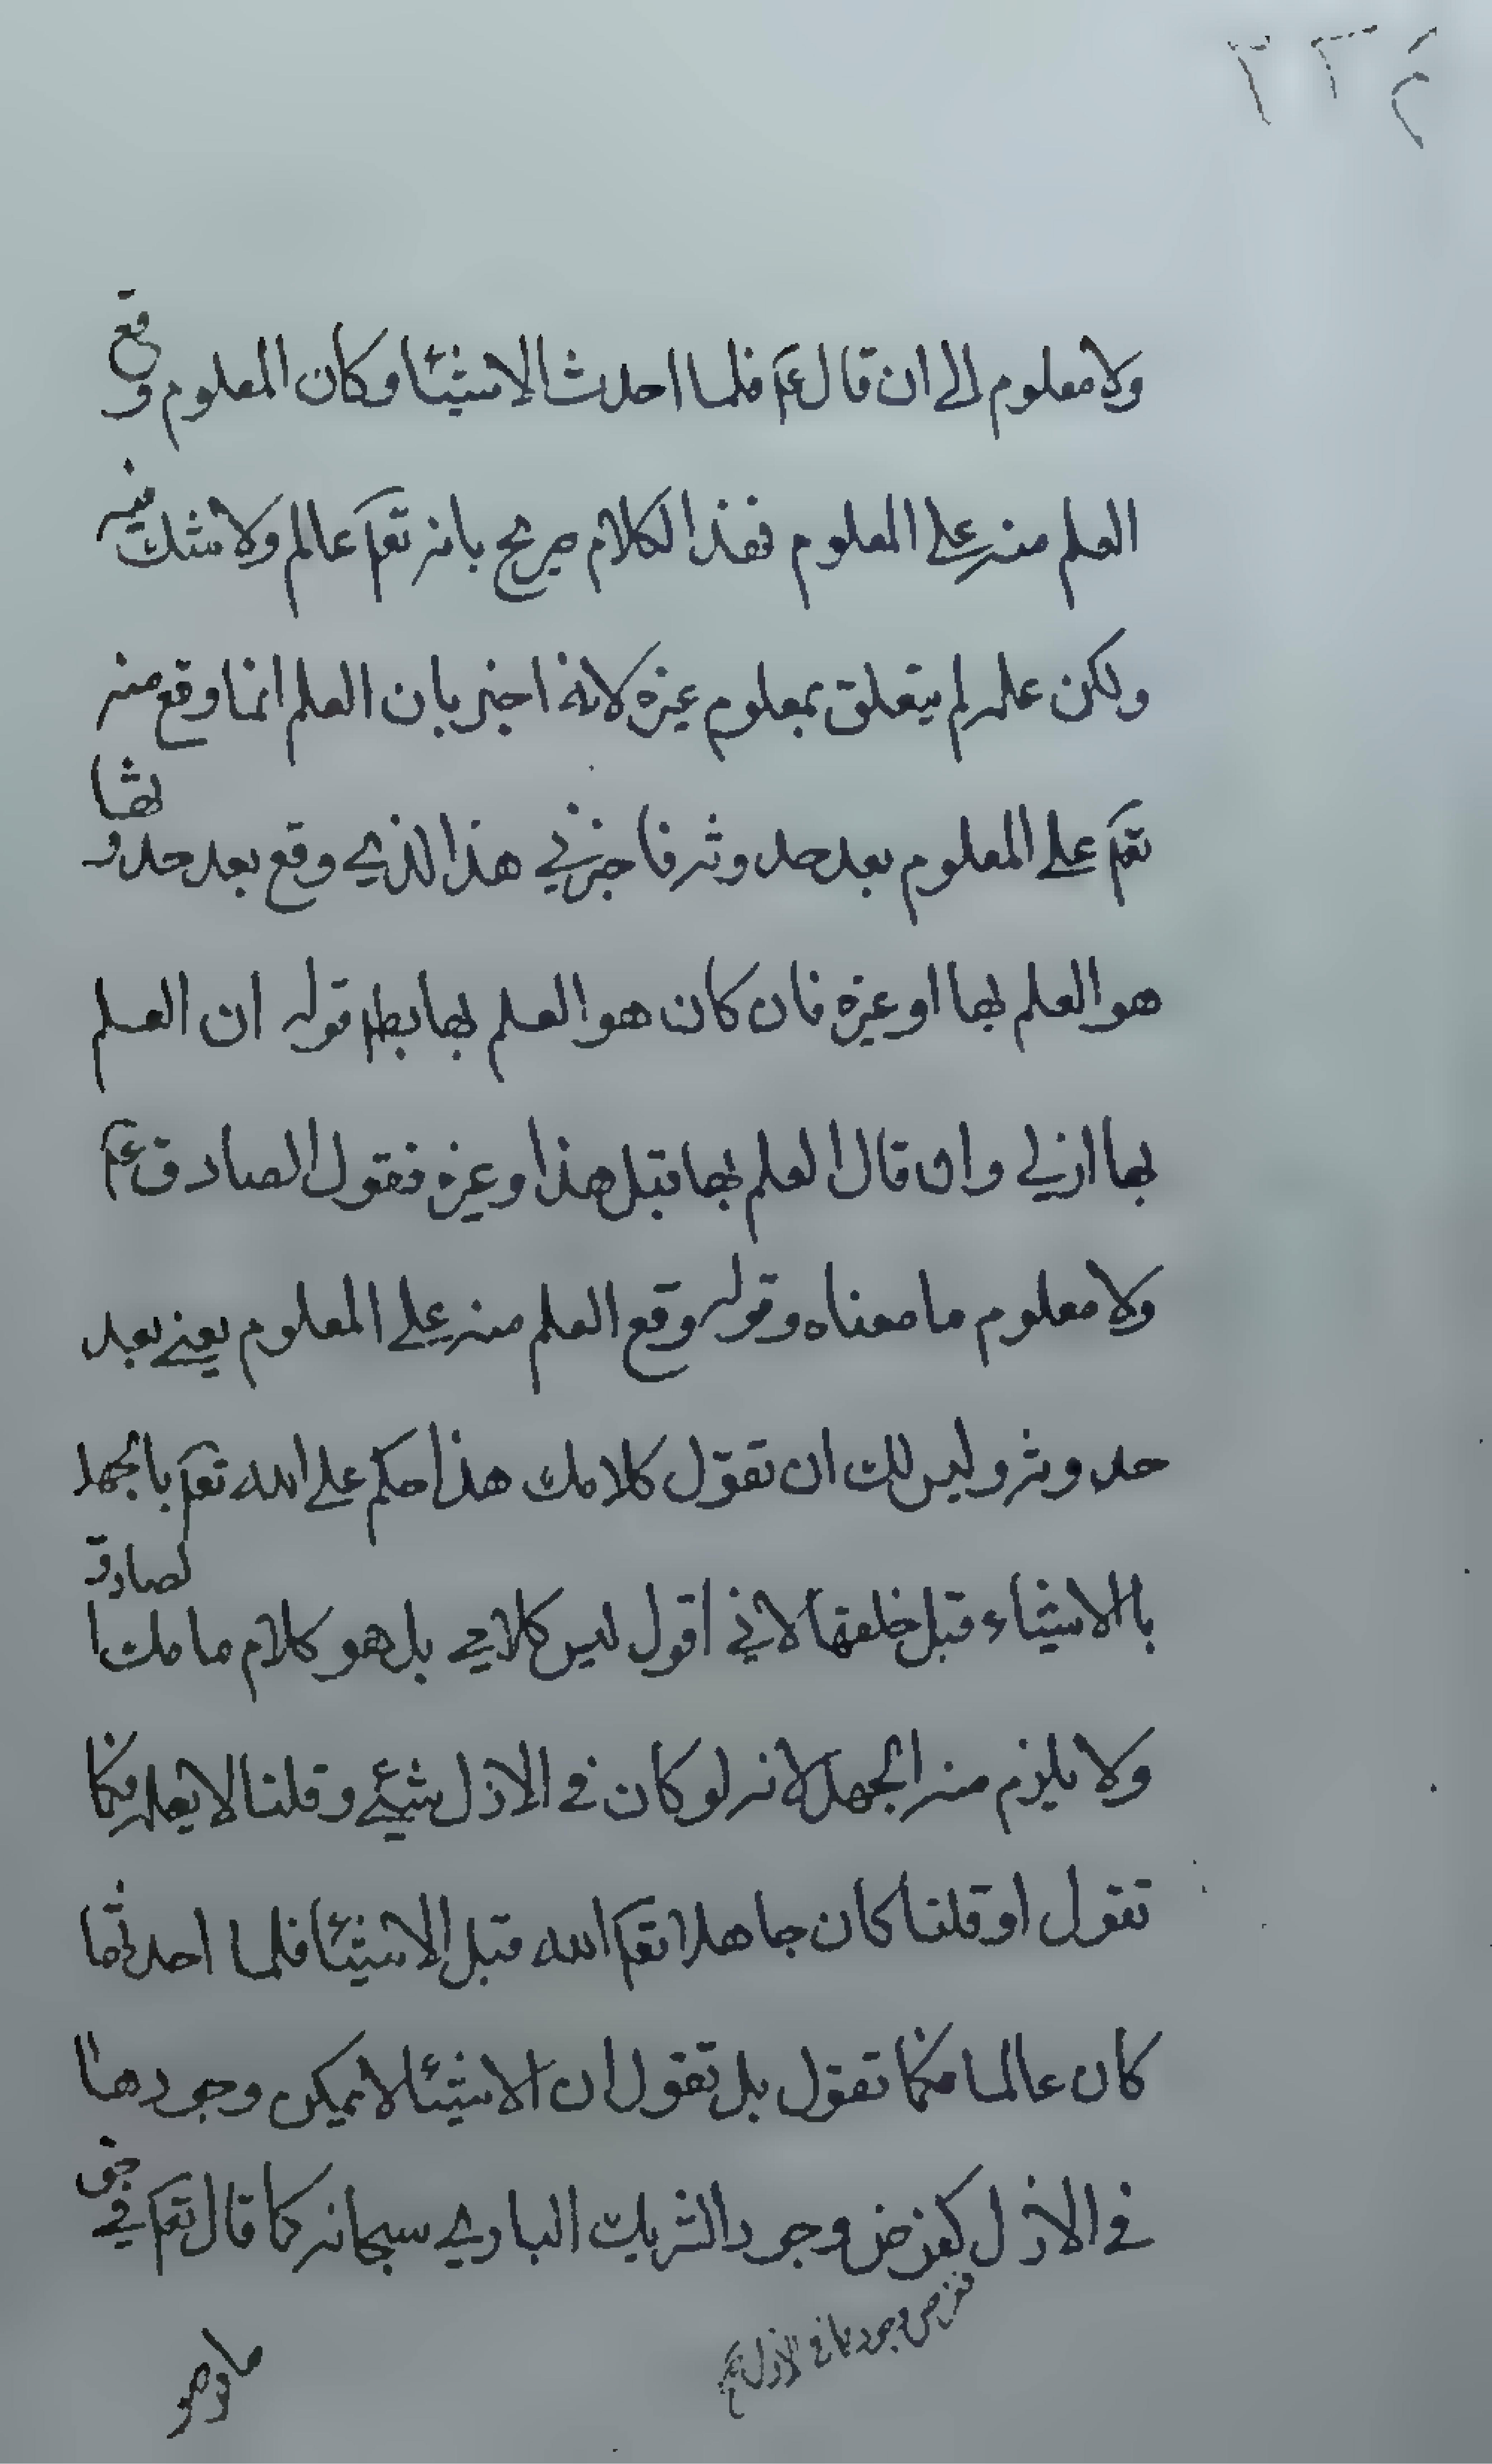 ٢٣٤
ولا معلوم الى ان قال ع فلما احدث الاشيئا وكان المعلوم وقع
العلم منه على المعلوم فهذا الكلام صريح بانه تعم عالم ولا شك فيه
ولكن علمه لم يتعلق بمعلوم غيره لانه اخبر بان العلم انما وقع منه
تعم على المعلوم بعد حدوثه فاخبرني هذا الذي وقع بعد حدوثها
هو العلم بها او غيره فان كان هو العلم بها بطل قوله ان العلم
بها ازلي وان قال العلم بها قبل هذا وغيره فقول الصادق ع
ولا معلوم ما معناه وقوله وقع العلم منه على المعلوم يعني بعد
حدوثه وليس لك ان تقول كلامك هذا حكم على الله تعم بالجهل
باالاشيئاء قبل خلقها لاني اقول ليس كلامي بل هو كلام امامك الصادق
ولا يلزم منه الجهل لانه لو كان في الازل شيئ وقلنا لا يعلمه فكما
تقول او قلنا كان جاهلا تعم الله قبل الاشيئا فلما احدثها
كان عالما فكما تقول بل تقول ان الاشيئا لا يمكن وجودها
في الازل كفرض وجود الشريك الباري سبحانه كما قال تعم في حق
فرض وجودها في الازل
ما وهو